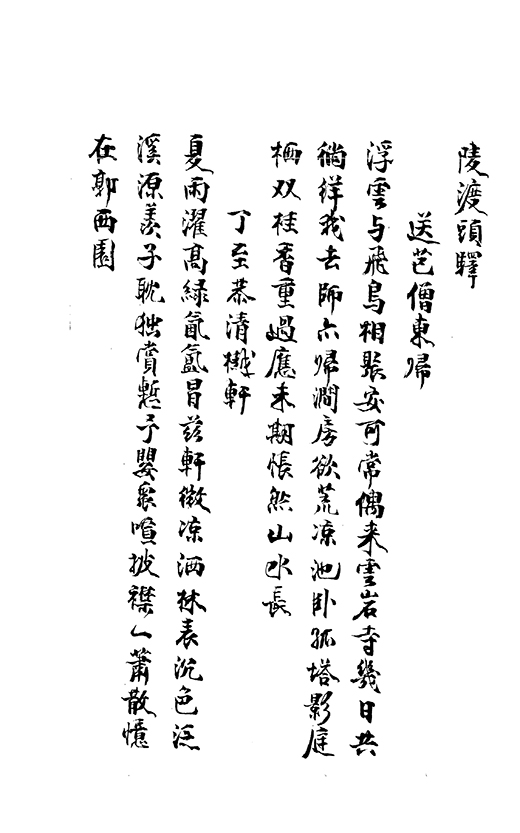 陵渡頭驛
送芑僧東歸
浮雲与飛鳥相聚安可常偶来雲岩寺幾日共
徜徉我去師亦歸澗房欲荒凉池卧孤塔影庭
栖双桂香重過應未期悵然山水長
丁至恭清樾軒
夏雨濯高緑氤氲冒茲軒微凉洒林表沉色涵
溪源羨子耽独賞慙予嬰衆喧披襟一蕭散憶
在郭西園